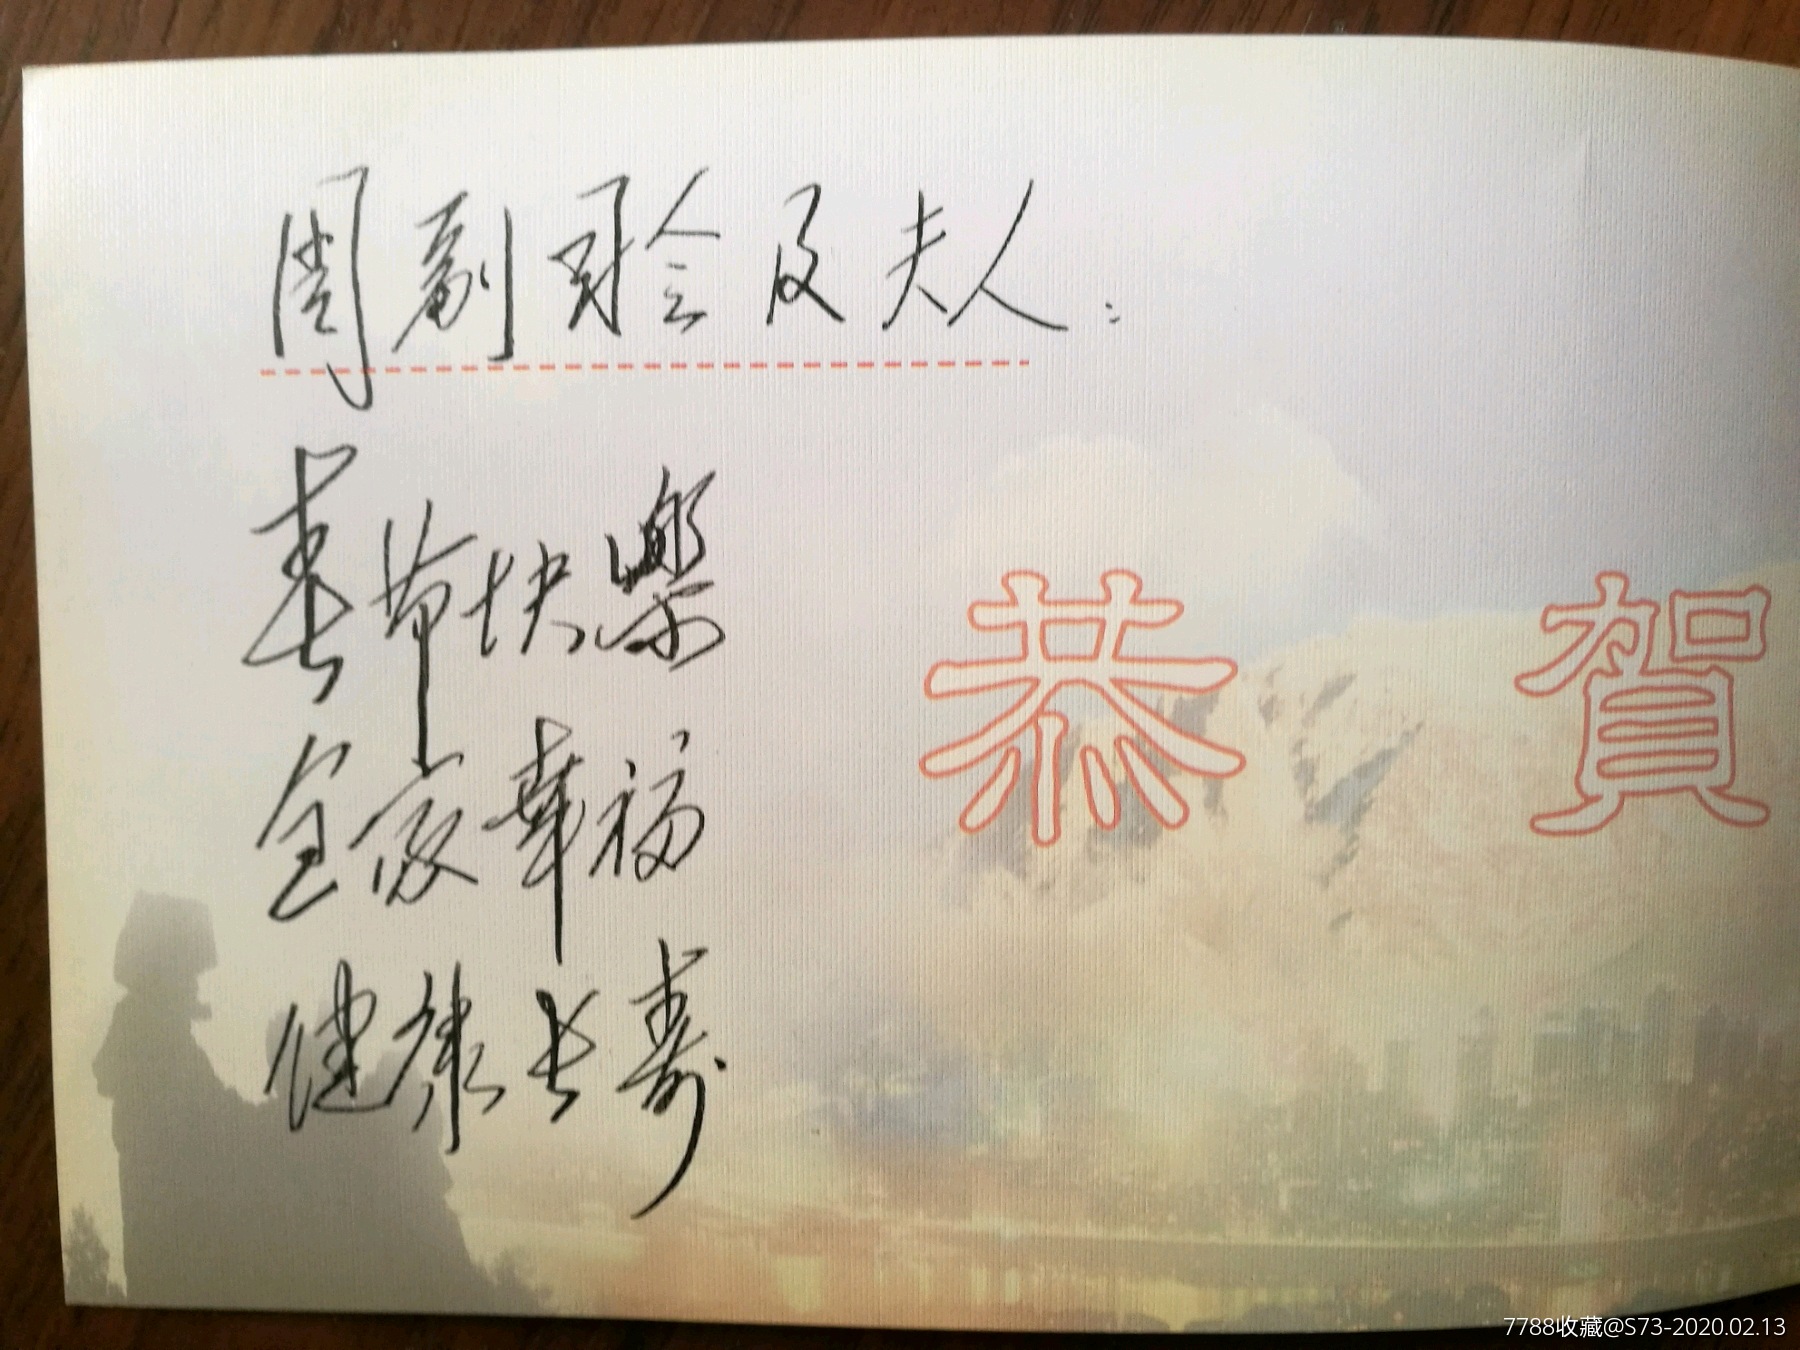 周副司令及夫人：
春节快樂
全家幸福
健康长寿
恭賀
7788收藏@S73-2020.02.13